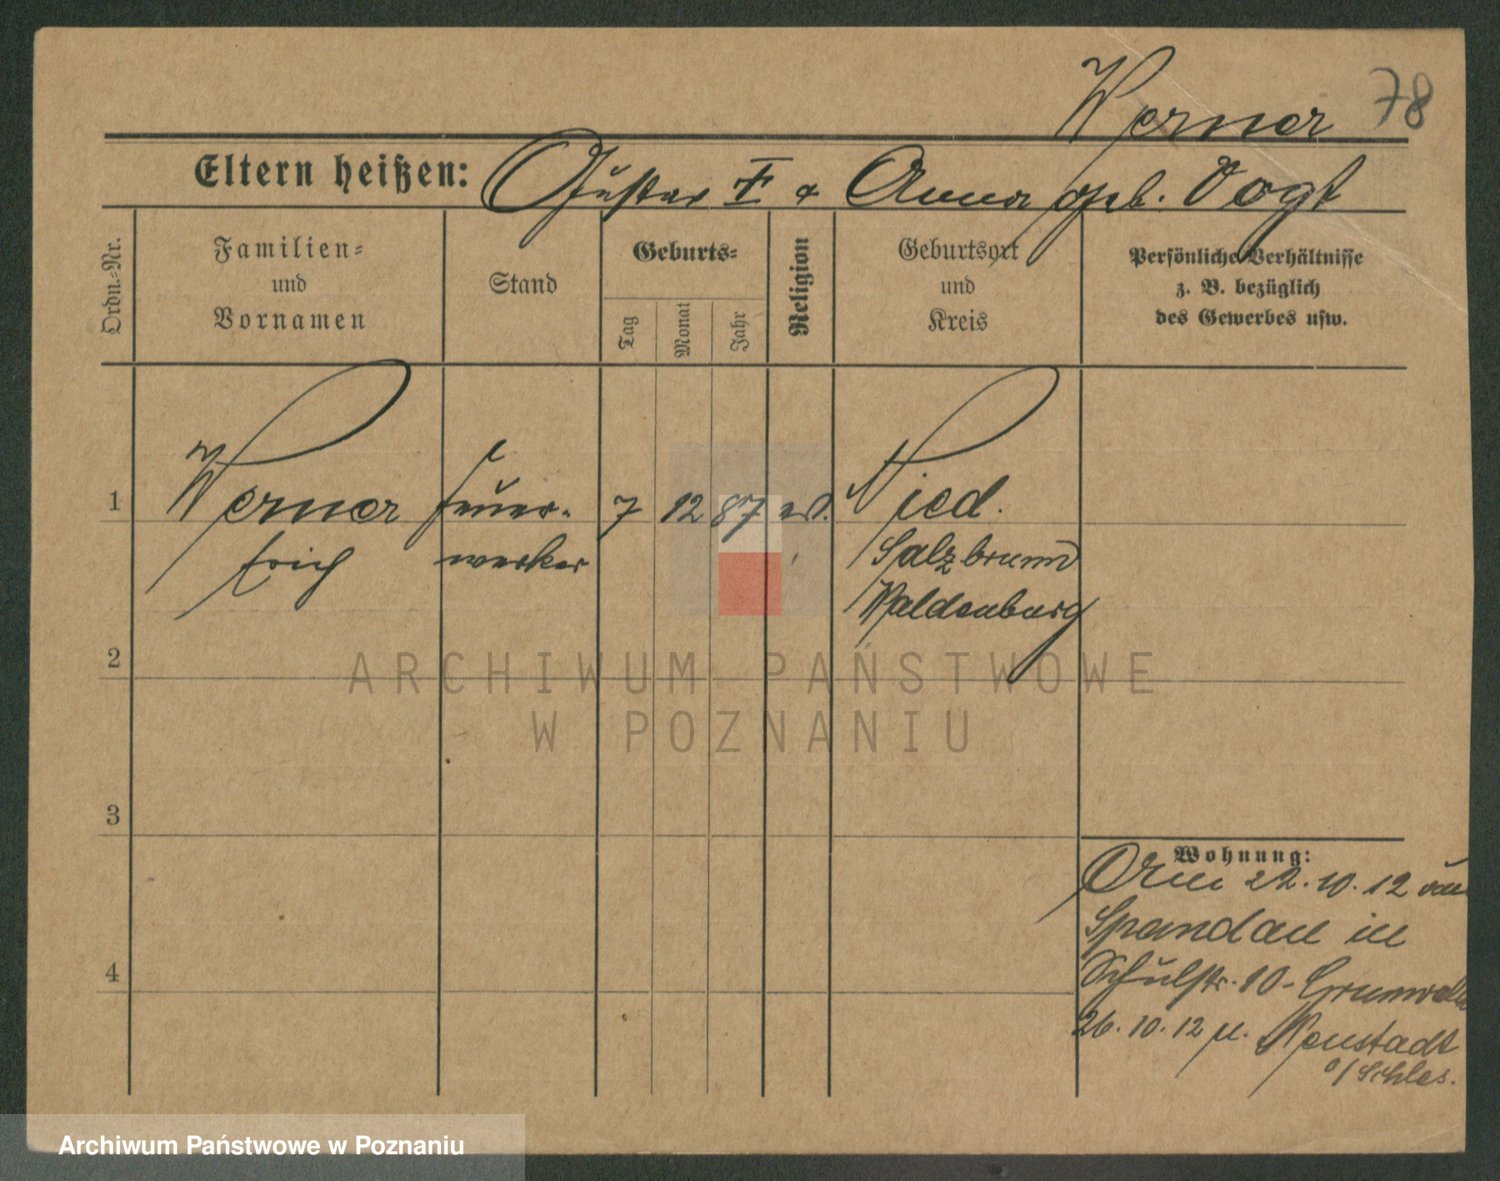 Werner 78
Eltern heißen: Gustav & Anna geb. Vogt
Ordn.-Nr.
Familien-
und
Vornamen
Stand
Geburts-
Tag
Monat
Jahr
Religion
Geburtsort
und
Kreis
Persönliche Verhältnisse
z. B. bezüglich
des Gewerbes usw.
1 Werner Feuer- 7 12 87 ev. Nied.
Erich werker Salzbrunn
Waldenburg
2
ARCHIWUM PAŃSTWOWE
W POZNANIU
3
Wohnung:
22.10.12 von
Spandau in
Schulstr. 10 - Grunwald
26.10.12 n. Neustadt
o/Schles.
4
Archiwum Państwowe w Poznaniu